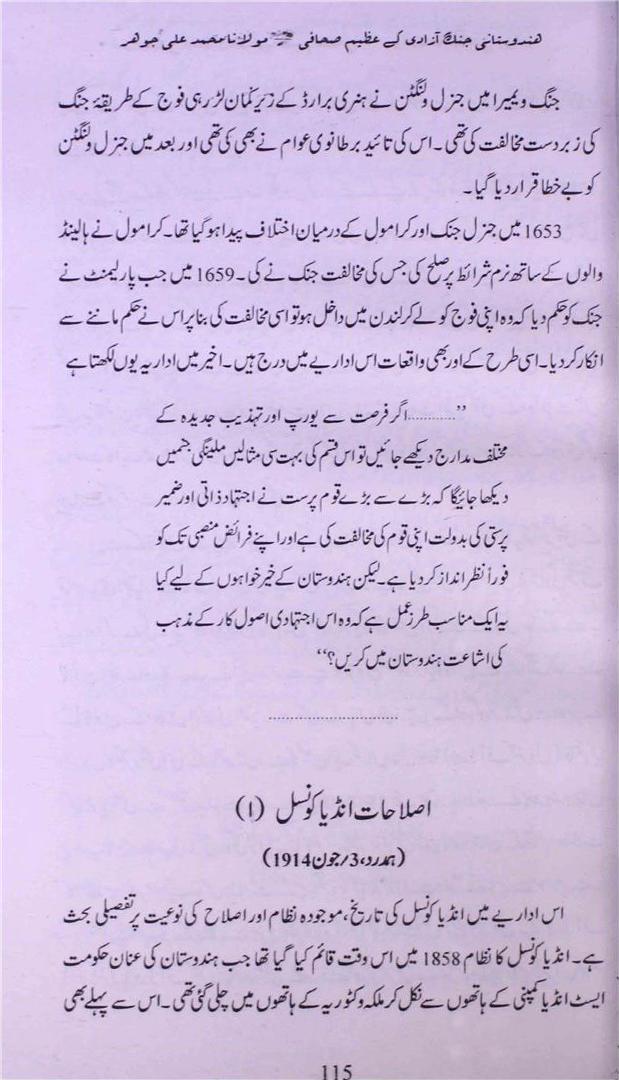 هندوستانی جنگ آزادی کے عظیم صحافی مولانا محمد علی جوہر
جنگ ویمیرا میں جنرل ولنگٹن نے ہنری برارڈ کے زیر کمان لڑ رہی فوج کے طریقۂ جنگ
کی زبردست مخالفت کی تھی۔ اس کی تائید برطانوی عوام نے بھی کی تھی اور بعد میں جنرل ولنگٹن
کو بے خطا قرار دیا گیا۔
1653 میں جنرل جنک اور کرامول کے درمیان اختلاف پیدا ہو گیا تھا۔ کرامول نے ہالینڈ
والوں کے ساتھ نرم شرائط پر صلح کی جس کی مخالفت جنک نے کی۔ 1659 میں جب پارلیمنٹ نے
جنک کو حکم دیا کہ وہ اپنی فوج کو لے کر لندن میں داخل ہو تو اسی مخالفت کی بنا پر اس نے حکم ماننے سے
انکار کر دیا۔ اسی طرح کے اور بھی واقعات اس اداریے میں درج ہیں۔ اخیر میں اداریہ یوں لکھتا ہے
”............اگر فرصت سے یورپ اور تہذیب جدیدہ کے
مختلف مدارج دیکھے جائیں تو اس قسم کی بہت سی مثالیں ملینگی جنمیں
دیکھا جائیگا کہ بڑے سے بڑے قوم پرست نے اجتہاد ذاتی اور ضمیر
پرستی کی بدولت اپنی قوم کی مخالفت کی ہے اور اپنے فرائض منصبی تک کو
فوراً نظر انداز کر دیا ہے۔ لیکن ہندوستان کے خیر خواہوں کے لیے کیا
یہ ایک مناسب طرز عمل ہے کہ وہ اس اجتہادی اصول کار کے مذہب
کی اشاعت ہندوستان میں کریں؟“
................................
اصلاحات انڈیا کونسل (۱)
(ہمدرد، 3/جون 1914)
اس اداریے میں انڈیا کونسل کی تاریخ، موجودہ نظام اور اصلاح کی نوعیت پر تفصیلی بحث
ہے۔ انڈیا کونسل کا نظام 1858 میں اس وقت قائم کیا گیا تھا جب ہندوستان کی عنان حکومت
ایسٹ انڈیا کمپنی کے ہاتھوں سے نکل کر ملکہ وکٹوریہ کے ہاتھوں میں چلی گئی تھی۔ اس سے پہلے بھی
115